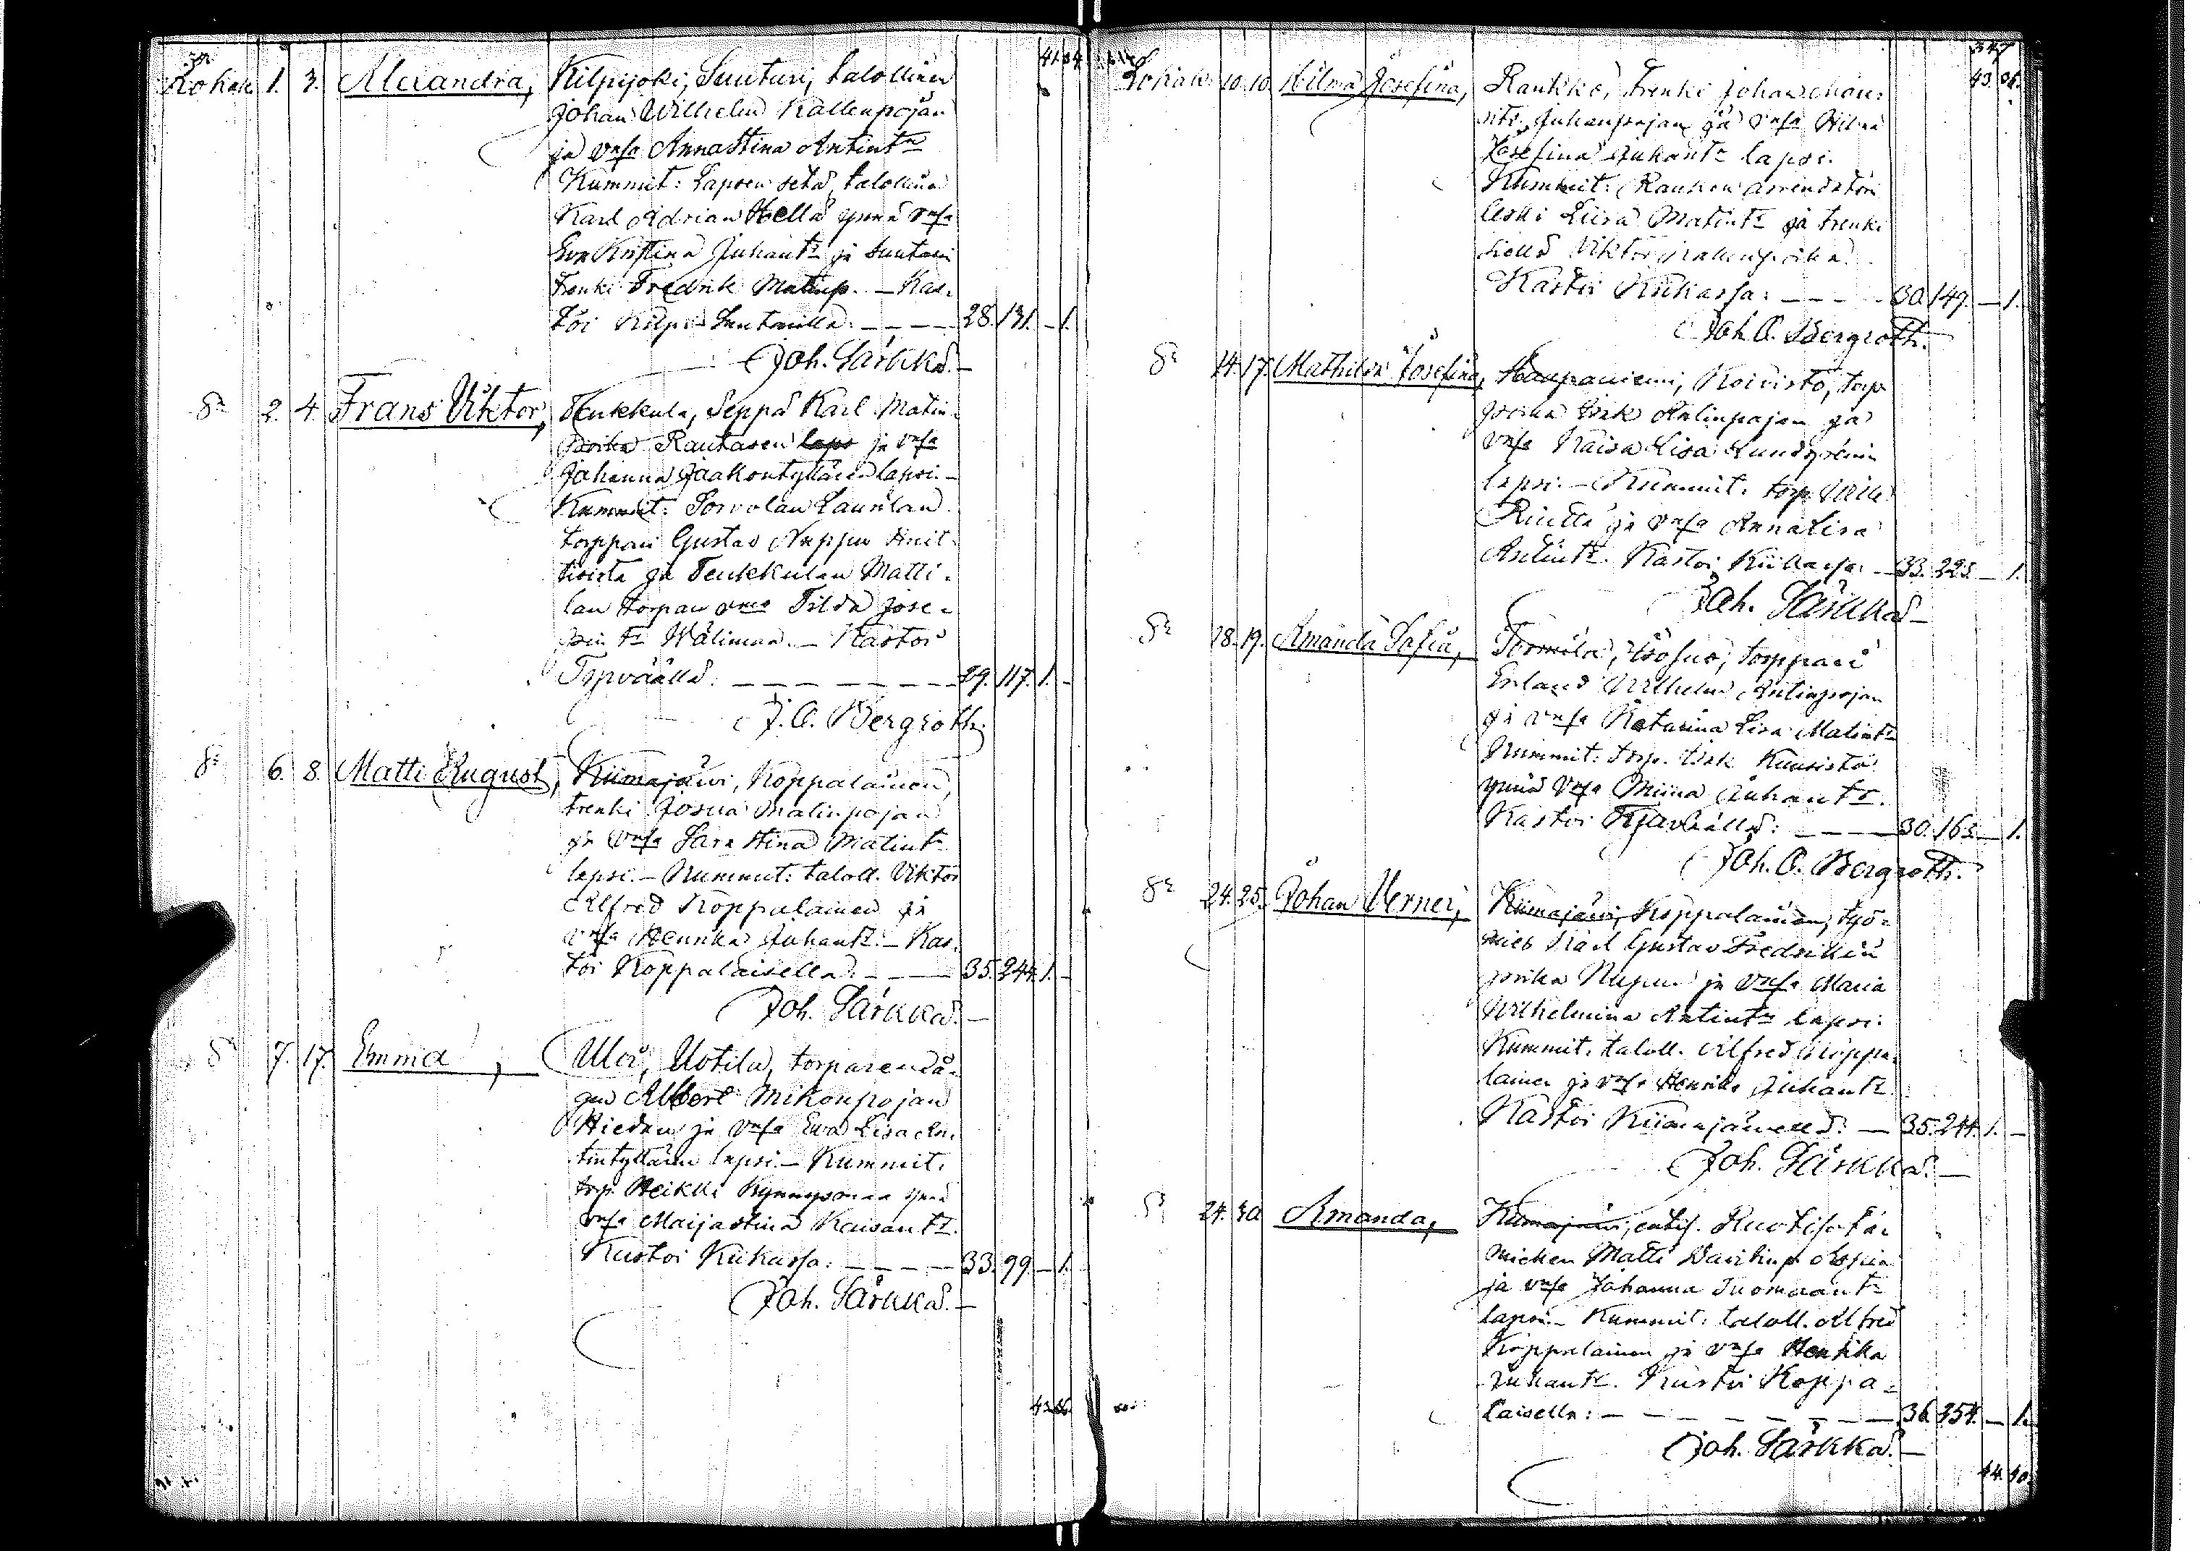 41. 04.
Lokak. 1. 3. Alexandra, Kilpijoki, Suuturi, talollinen
Johan Wilhelm Kallenpojan
ja vmsa Annastina Antintr
Kummit: Lapsen setä, talollinen
Karl Adrian Hellä ynnä vmsa
Eva Kristina Juhantr ja Suuturi
trenki Fredrik Matinp. — Kas-
toi Kilpi Suuturilla: — — — — 28. 131. — 1.
Joh. Särkkä. —
Dr 2. 4. Frans Viktor, Teukkula, Seppä Karl Matin-
poika Rautasen laps ja vmsa
Johanna Jaakontyttären lapsi. —
Kummit: Sorvolan Laurilan
torppari Gustav Nuppu
ja Teukkulan Matti-
lan torpan Tilda Jose-
pin tr Wälimaa. — Kastoi
Tyrväällä: — — — — — — — 29. 117. 1. —
J. O. Bergroth.
Dr 6. 8. Matti August, Kiimajärvi, Koppalainen,
trenki Josua Matinpojan
ja vmsa Sara Stina Matintr
lapsi. — Kummit: taloll. Viktor
Alfred Koppalainen ja
vmsa Henrika Juhantr. — Kas-
toi Koppalaisella: — — — 35. 244. 1. —
Joh. Särkkä. —
Dr 7. 17. Emma, Uloi, Uotila, torparendå-
gen Albert Mikonpojan
Hiedan ja vmsa Eva Lisa An-
tintyttären lapsi. — Kummit:
torp. Heikki Kynnysmaa ynnä
vmsa Maijastina Kaisantr.
Kastoi Kiikassa: — — — — 33. 99. — 1.
Joh. Särkkä. —
43. 06.
347
43. 06.
Lokak. 10. 10. Hilma Josefina, Raukko, trenki Johan Mau-
rits Juhanpojan ja vmsa Hilma
Josefina Juhantr lapsi.
Kummit: Raukon arrendatorin
leski Liisa Matintr ja trenki
siellä Viktor Kallenpoika.
Kastoi Kiikassa: — — — — 30. 149. — 1.
Joh. O. Bergroth.
Dr 14. 17. Mathilda Josefina, Haapaniemi, Koivisto, torp.
poika Isak Kalinpojan ja
vmsa Kaisa Lisa Lundqvistin
lapsi. — Kummit: torp. Ville
ja vmsa Anna Lisa
Antintr. Kastoi Kiikassa: — 33. 225. — 1.
Joh. Särkkä —
Dr 18. 19. Amanda Sofia, Tormila, Isosuo, torppari
Erland Wilhelm Antinpojan
ja vmsa Katarina Lisa Matintr
Kummit: torp. Isak Kuusisto
ynnä vmsa Miina Juhantr.
Kastoi Tyrväällä: — — — — 30. 163. — 1.
Joh. O. Bergroth.
Dr 24. 25. Johan Verner, Kiimajärvi, Koppalainen, työ-
mies Karl Gustav Fredrikin
poika Nupun ja vmsa Maria
Wilhelmina Antintr lapsi.
Kummit: taloll. Alfred Koppa-
lainen ja vmsa Henrika Juhantr.
Kastoi Kiimajärvellä: — 35. 244. 1. —
Joh. Särkkä. —
Dr 24. 30. Amanda, Kiimajärvi, entis. Ruotisotа-
miehen Matti Davidinp.
ja vmsa Johanna Tuomaantr
lapsi. — Kummit: taloll. Alfred
Koppalainen ja vmsa Henrika
Juhantr. Kastoi Koppa-
laisella: — — — — — — — 36. 354. — 1.
Joh. Särkkä. —
44. 10.